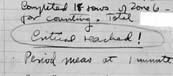 Completed 18 rows of Zone 6 -
for counting. Total
Critical reached!
Period meas at 1 minute